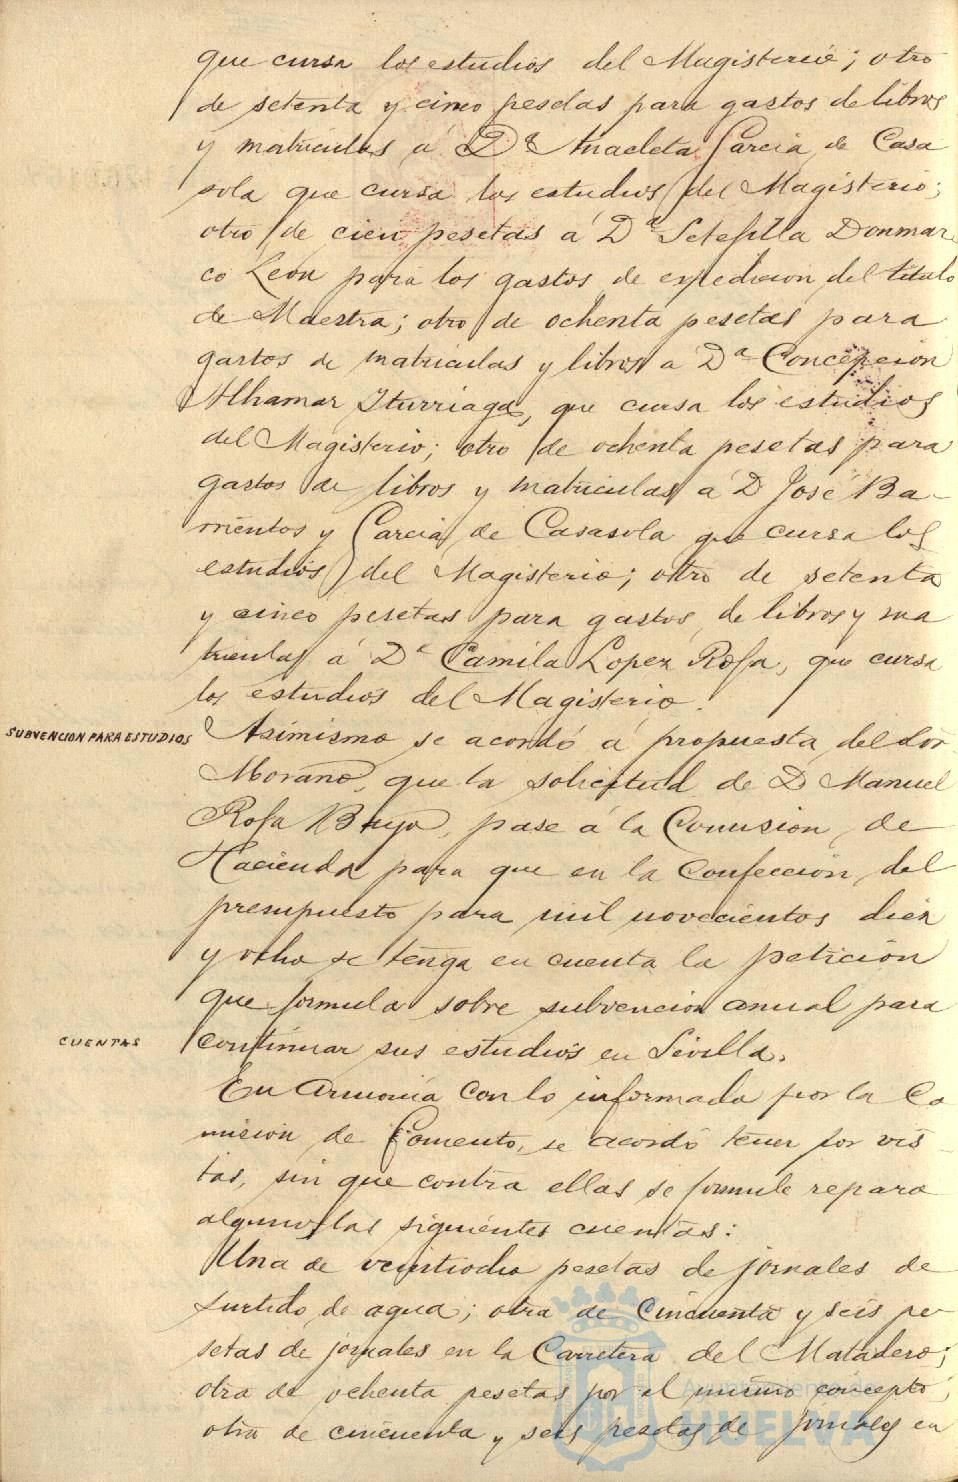 que cursa los estudios del Magisterio; otro
de setenta y cinco pesetas para gastos de libros
y matriculas a Dª Anacleta Garcia de Casa
sola que cursa los estudios del Magisterio;
otro de cien pesetas á Dª Setefilla Donmar
co León para los gastos de expedicion del titulo
de Maestra; otro de ochenta pesetas para
gastos de matriculas y libros a Dª Concepción
Alhamar Iturriaga, que cursa los estudios
del Magisterio; otro de ochenta pesetas para
gastos de libros y matriculas á D José Ba-
rrientos y Garcia de Casasola que cursa los
estudios del Magisterio; otro de setenta
y cinco pesetas para gastos de libros y ma
triculas á Dª Camila Lopez Rofa, que cursa
los estudios del Magisterio.
SUBVENCION PARA ESTUDIOS
Asimismo se acordó á propuesta del Sor
Morano, que la solicitud de D Manuel
Rofa Bayo, pase á la Comision de
Hacienda para que en la confección del
presupuesto para mil novecientos diez
y ocho se tenga en cuenta la petición
que formula sobre subvencion anual para
continuar sus estudios en Sevilla.
CUENTAS
En armonía con lo informado por la Co
mision de Fomento, se acordó tener por vis-
tas, sin que contra ellas se formule reparo
alguno, las siguientes cuentas:
Una de veintiocho pesetas de jornales de
surtido de agua; otra de cincuenta y seis pe-
setas de jornales en la Carretera del Matadero;
otra de ochenta pesetas por el mismo concepto;
otra de cincuenta y seis pesetas de jornales en
Ayuntamiento de
HUELVA